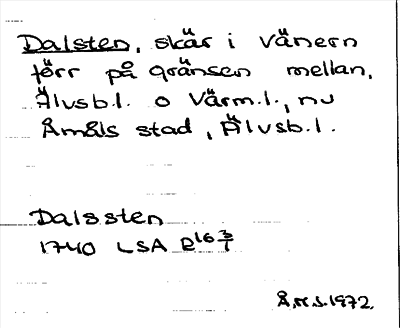 Dalsten, skär i Vänern
förr på gränsen mellan,
Älvsb.l. o Värm.l., nu
Åmåls stad, Älvsb.l.
Dalssten
1740 LSA R16 3/1
Å.M.S. 1972.